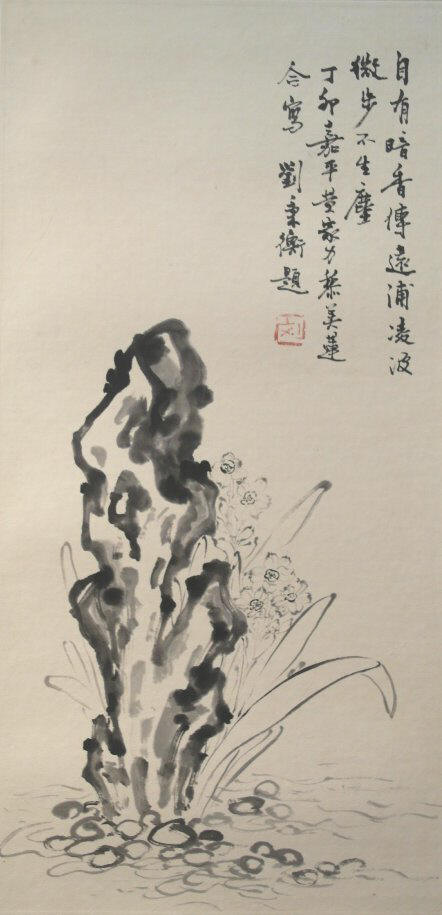 自有暗香傳遠浦凌波
微步不生塵
丁卯嘉平黃家力黎美蓮
合寫 劉秉衡題